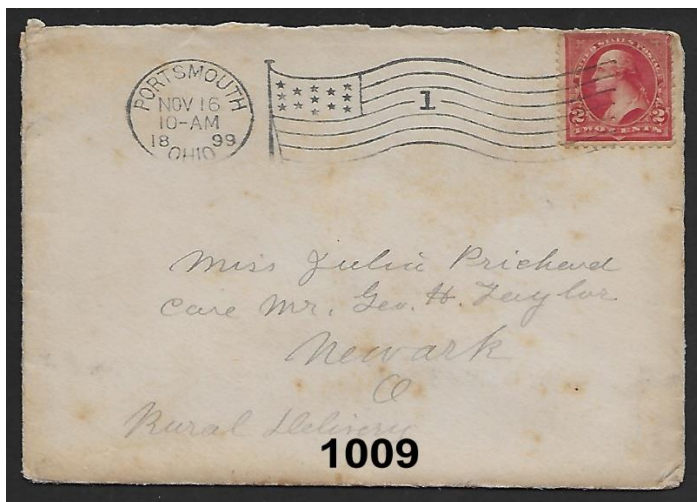 PORTSMOUTH
NOV 16
10-AM
18 99
OHIO
1
UNITED STATES POSTAGE
2 TWO CENTS 2
Miss Julia Prichard
Care Mr. Geo. H. Taylor
Newark
O
Rural Delivery
1009